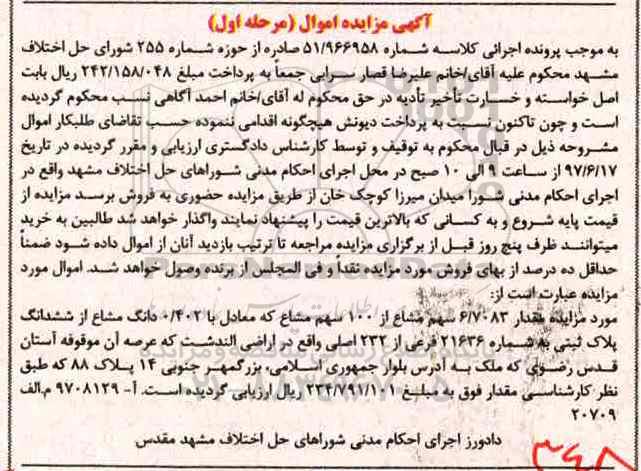 آگهی مزایده اموال (مرحله اول)
به موجب پرونده اجرائی کلاسه شماره ۵۱/۹۶۶۹۵۸ صادره از حوزه شماره ۲۵۵ شورای حل اختلاف
مشهد محکوم علیه آقای/خانم علیرضا قصار سرابی جمعاً به پرداخت مبلغ ۲۴۲/۱۵۸/۰۴۸ ریال بابت
اصل خواسته و خسارت تأخیر تأدیه در حق محکوم له آقای/خانم احمد آگاهی نسب محکوم گردیده
است و چون تاکنون نسبت به پرداخت دیونش هیچگونه اقدامی ننموده حسب تقاضای طلبکار اموال
مشروحه ذیل در قبال محکوم به توقیف و توسط کارشناس دادگستری ارزیابی و مقرر گردیده در تاریخ
۹۷/۶/۱۷ از ساعت ۹ الی ۱۰ صبح در محل اجرای احکام مدنی شوراهای حل اختلاف مشهد واقع در
اجرای احکام مدنی شورا میدان میرزا کوچک خان از طریق مزایده حضوری به فروش برسد مزایده از
قیمت پایه شروع و به کسانی که بالاترین قیمت را پیشنهاد نمایند واگذار خواهد شد طالبین به خرید
میتوانند ظرف پنج روز قبل از برگزاری مزایده مراجعه تا ترتیب بازدید آنان از اموال داده شود ضمناً
حداقل ده درصد از بهای فروش مورد مزایده نقداً و فی المجلس از برنده وصول خواهد شد. اموال مورد
مزایده عبارت است از:
مورد مزایده مقدار ۶/۷۰۸۳ سهم مشاع از ۱۰۰ سهم مشاع که معادل با ۰/۴۰۲ دانگ مشاع از ششدانگ
پلاک ثبتی به شماره ۲۱۶۳۶ فرعی از ۲۳۲ اصلی واقع در اراضی الندشت که عرصه آن موقوفه آستان
قدس رضوی که ملک به آدرس بلوار جمهوری اسلامی، بزرگمهر جنوبی ۱۴ پلاک ۸۸ که طبق
نظر کارشناسی مقدار فوق به مبلغ ۲۳۴/۷۹۲/۱۰۱ ریال ارزیابی گردیده است. آ- ۹۷۰۸۱۲۹ م.الف
۲۰۷۰۹
دادورز اجرای احکام مدنی شوراهای حل اختلاف مشهد مقدس